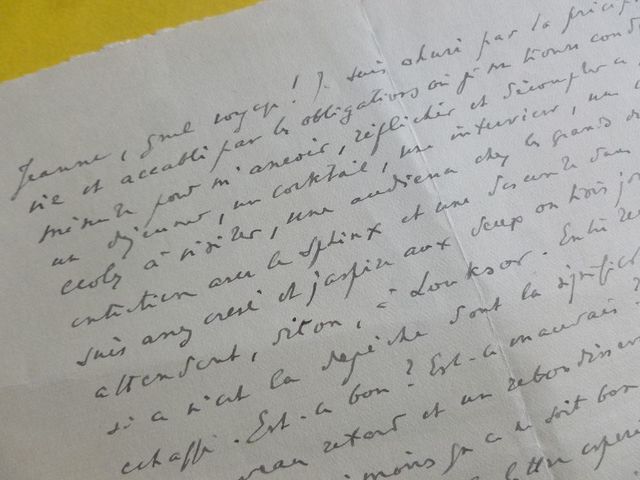 Jeanne, quel voyage ! Je suis ahuri par la précipi
vie et accablé par les obligations où je me trouve
minute pour m'asseoir, réfléchir et décompter
un déjeuner, un cocktail, une interview, une
école à visiter, une audience chez les grands
entretien avec le Sphinx et une descente dans
suis assez crevé et j'aspire aux deux ou trois jou
attendent, dit-on, à Louksor. Entre
si ce n'est la dépêche dont la signific
échappé. Est-ce bon ? Est-ce mauvais ?
retard et un rebondisse
moins que ce ne soit bon
lettre